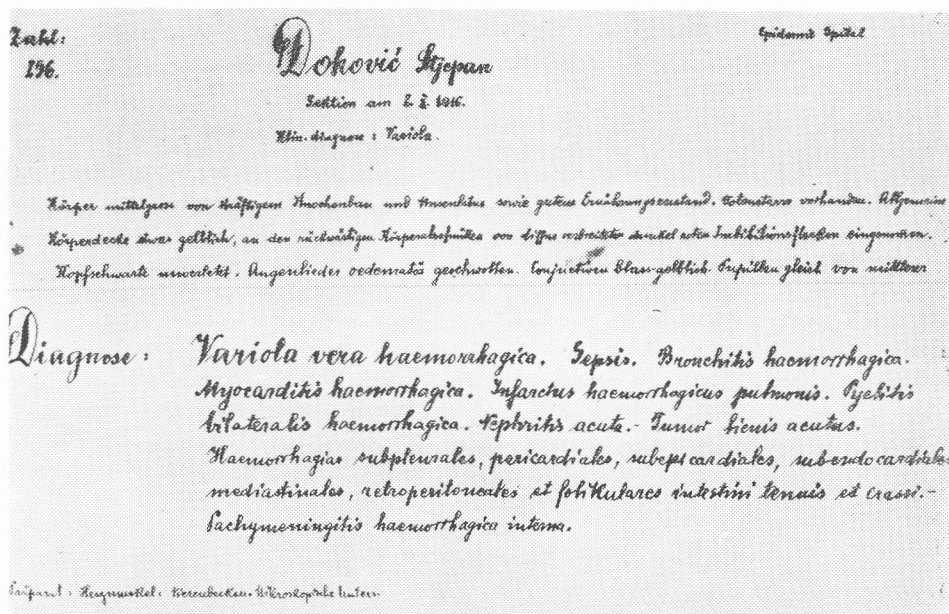 Zahl:
196.
Epidemie Spital
Doković Stjepan
Sektion am 2. X. 1916.
Klin. diagnose: Variola.
Körper mittelgross von kräftigem Knochenbau und sowie gutem Ernährungszustand. Totenstarre vorhanden. Allgemeine
Körperdecke etwas gelblich, an den rückwärtigen Körperabschnitten von diffus verbreiteten dunkel roten Imbibitionsflecken eingenommen.
Kopfschwarte unverletzt. Augenlieder oedematös geschwollen. Conjuctiven blass-gelblich. Pupillen gleich von mittlerer
Diagnose: Variola vera haemorrhagica. Sepsis. Bronchitis haemorrhagica.
Myocarditis haemorrhagica. Infarctus haemorrhagicus pulmonis. Pyelitis
bilateralis haemorrhagica. Nephritis acuta.- Tumor lienis acutus.
Haemorrhagiae subpleurales, pericardiales, subepicardiales, subendocardiales
mediastinales, retroperitoneales et folikulares intestini tenuis et crassi.-
Pachymeningitis haemorrhagica interna.
Präparat: Herzmuskel: Nierenbecken. Mikroskopische Unters.